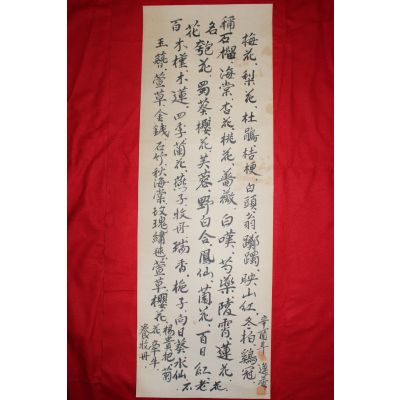 梅花、梨花、杜鵑、桔梗、白頭翁、躑躅、映山紅、冬柏、鷄冠、
稱石榴、海棠、杏花、桃花、薔薇、白嘆、芍藥、陵霄、蓮花、
名匏花、蜀葵、櫻花、芙蓉、野百合、鳳仙、蘭花、百日紅、
花
百木槿、木蓮、四季蘭花、燕子、牧丹、瑞香、梔子、向日葵、水仙、不老花、
玉簪、萱草、金錢、石竹、秋海棠、玫瑰、繡毬、萱草、櫻花、
楊貴妃、菊花、牽牛、
牧丹
辛酉